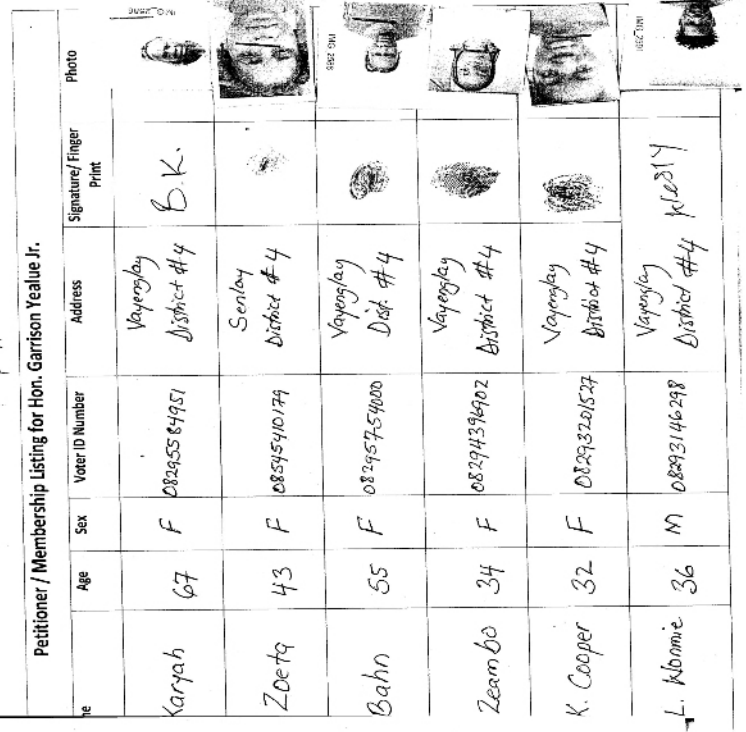 Petitioner / Membership Listing for Hon. Garrison Yealue Jr.
Age Sex Voter ID Number Address Signature/ Finger Print Photo
Karyah 67 F 08295584951 Vayenglay District #4 B.K.
Zoeta 43 F 08545410179 Senlay District #4
Bahn 55 F 08295754000 Vayenglay Dist. #4 IMG 2588
Zeambo 34 F 08294396902 Vayenglay District #4
K. Cooper 32 F 08293201527 Vayenglay District #4
L. Wonmie 36 M 08293146298 Vayenglay District #4